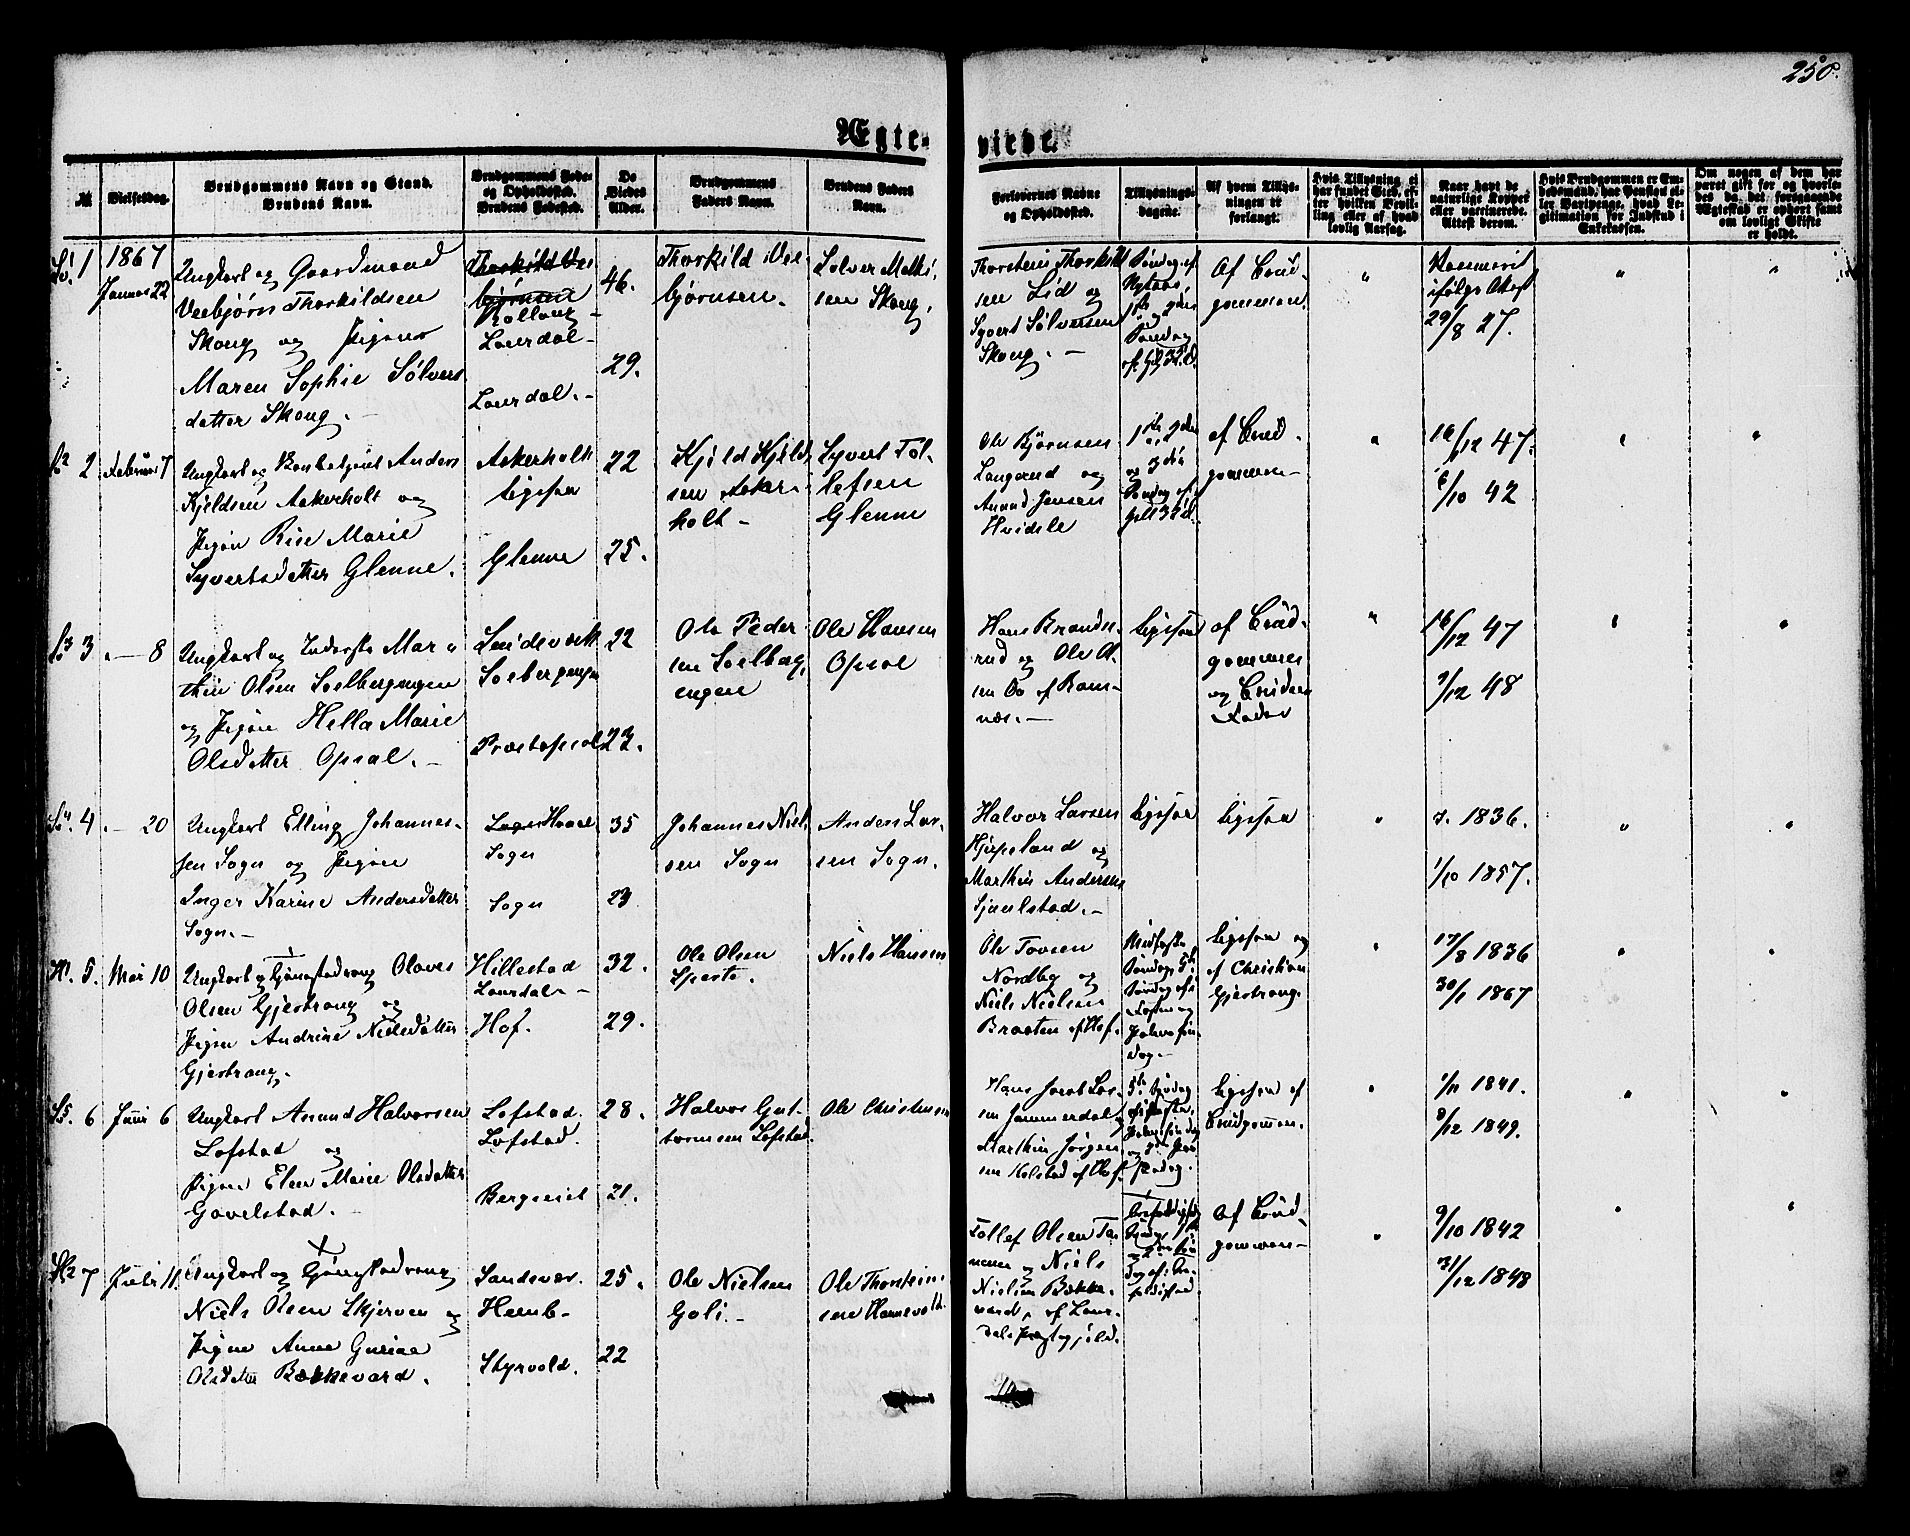 250.
Ægte-
viede.
№
Vielsesdag.
Brudgommens Navn og Stand.
Brudens Navn.
Brudgommens Føde-
og Opholdssted.
Brudens Fødested.
De
Viedes
Alder.
Brudgommens
Faders Navn.
Brudens Faders
Navn.
Forlovernes Navne
og Opholdssted.
Tillysnings-
dagene.
Af hvem Tillys-
ningen er
forlangt.
Hvis Tillysning ei
har fundet Sted, ef-
ter hvilken Bevil-
ling eller af hvad
lovlig Aarsag.
Naar havt de
naturlige Kopper
eller vaccinerede.
Attest derom.
Hvis Brudgommen er Em-
bedsmand, har Pension el-
ler Vartpenge, hvad Le-
gitimation for Indskud i
Enkekassen.
Om nogen af dem har
været gift før og hvorle-
des da det foregaaende
Ægteskab er ophørt samt
om lovligt Skifte
er holdt.
1
1867
Januar 22
Ungkarl og Gaardmand
Veebjørn Thorkildsen
Skoug og Pigen
Maren Sophie Sølvers
datter Skoug. -
Laurdal -
Laurdal. -
46.
29.
Thorkild Vee
bjørnsen.
Solver Mathi
sen Skoug.
Thorsten Thorkild
sen Lid og
Syvert Sølversen
Skoug. -
Søndag ef
Nytaar,
1ste og 2den
Søndag
Af Brud-
gommen.
"
Vaccinerid
ifølge Attest
29/8 27.
"
"
2
Februar 7
Ungkarl og Anders
Kjeldsen Aakerholt og
Pigen Rise Marie
Syvertsdatter Glenne.
Aakerholt
ligesaa
Glenne
22
25.
Kjeld Kjeld
sen Aaker-
holt -
Syvert Tol-
lefsen
Glenne
Ole Bjørnsen
Langrand og
Anund Jensen
Hvidsle
1ste, 2den
og 3die
Søndag ef.
af Brud-
gommen -
"
16/12 47.
6/10 42
"
"
3
- 8
Ungkarl og Inderste Mar-
thin Olsen Solbergengen
og Pigen Hella Marie
Olsdatter Opsal. -
Solbergengen
Præstopsal
22
23.
Ole Peder
sen Solberg
engen
Ole Hansen
Opsal
Hans Brands-
rud og Ole Ol-
sen Oo af Ram-
næs. -
ligesaa
af Brud-
gommen
og Brudens
Fader
"
16/12 47
7/12 48
"
"
4
- 20
Ungkarl Elling Johannes-
sen Sogn og Pigen
Inger Karine Andersdatter
Sogn. -
Sogn
Sogn
35
23
Johannes Niel
sen Sogn
Anders Lar-
sen Sogn.
Halvor Larsen
Hjelpeland og
Marthin Andersen
Sjuelstad. -
ligesaa
ligesaa
"
7. 1836.
1/10 1857.
"
"
5.
Mai 10
Ungkarl og Olaves
Olsen Gjestrang og
Pigen Andrine Nielsdatter
Gjestrang.
Hillestad
Laurdal -
Hof.
32.
29.
Ole Olsen
Sperte.
Niels Hansen
Ole Tovsen
Nordby og
Niels Nielsen
Braaten af Hof.
Midfaste
Søndag, 5te
Søndag af
Faste og
Palmesøn
dag. -
ligesaa og
af Christian
Gjestrang.
"
17/8 1836
30/1 1867
"
"
6
Juni 6
Ungkarl Anund Halvorsen
Lofstad og
Pigen Elen Marie Olsdatter
Gavelstad.
Lofstad.
Lofstad.
Bergseiet
28.
21.
Halvor Gut-
tormsen Lofstad.
Ole Christensen
Hans Jacob Lar-
sen Jammerdal
Marthin Jørgen
sen Holstad af Hof.
5te Søndag
af Faste,
Palmesøndag
ligesaa af
Brudgommen.
"
1/11 1841.
8/12 1849.
"
"
7
Juli 11.
Ungkarl og
Niels Olsen Skjerven og
Pigen Anne Gurine
Olsdatter Bækkevard.
Sandsvær.
Hemb -
Styrvold.
25.
22
Ole Nielsen
Goli. -
Ole Thorstein
sen Hannevold.
Tollef Olsen Tan
nenn og Niels
Nielsen Bække-
vard, af Laur-
dals Præstegjeld.
Af Brud-
gommen -
"
9/10 1842
31/12 1848
"
"